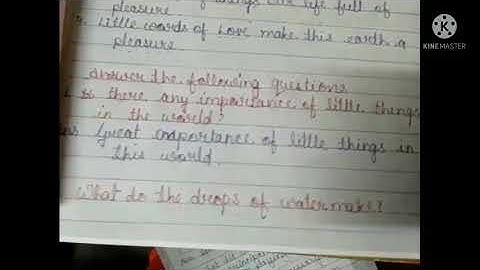 life full of
pleasure
Little words of Love make this earth a
pleasure
Answer the following questions
Is there any importance of little things
in the world?
Ans Great importance of little things in
this world.
What do the drops of water make?
KINEMASTER